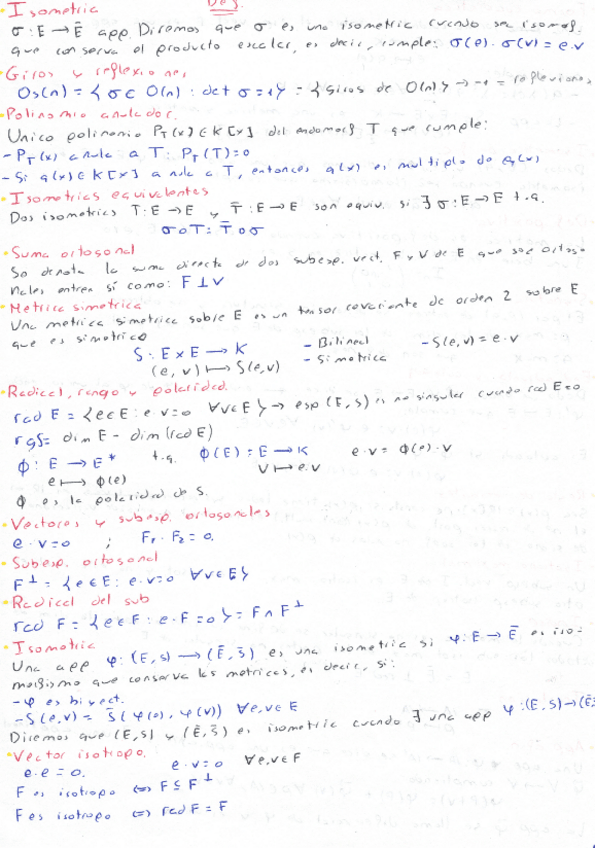 Def.
• Isometria
σ: E → Ē app. Diremos que σ es una isometria cuando sea isomorf.
que conserva el producto escalar, es decir, cumple: σ(e)·σ(v) = e·v
• Giros y reflexiones
Os(n) = { σ ∈ O(n) : det σ = 1 } = { Giros de O(n) } → -1 = reflexiones
• Polinomio anulador.
Unico polinomio P_T(x) ∈ K[x] del endomorf T que cumple:
- P_T(x) anula a T: P_T(T) = 0
- Si q(x) ∈ K[x] anula a T, entonces q(x) es multiplo de P_T(x)
• Isometrias equivalentes
Dos isometrias T: E → E y T̄: Ē → Ē son equiv. si ∃ σ: E → Ē t.q.
σ∘T = T̄∘σ
• Suma ortogonal
Se denota la suma directa de dos subesp. vect. F y V de E que son ortogo-
nales entre sí como: F ⊥ V
• Metrica simetrica
Una metrica simetrica sobre E es un tensor covariante de orden 2 sobre E
que es simetrico
S: E x E → K - Bilineal - S(e,v) = e·v
(e,v) ↦ S(e,v) - Simetrica
• Radical, rango y polaridad.
rad E = { e ∈ E : e·v = 0 ∀v ∈ E } → esp (E,S) es no singular cuando rad E = 0
rgS = dim E - dim (rad E)
Φ: E → E* t.q. Φ(E): E → K e·v = Φ(e)·v
e ↦ Φ(e) v ↦ e·v
Φ es la polaridad de S.
• Vectores y subesp. ortogonales
e·v = 0 ; F₁·F₂ = 0.
• Subesp. ortogonal
F^⊥ = { e ∈ E : e·v = 0 ∀v ∈ E }
• Radical del sub
rad F = { e ∈ F : e·F = 0 } = F ∩ F^⊥
• Isometria
Una app φ: (E,S) → (Ē,S̄) es una isometria si φ: E → Ē es iso-
morfismo que conserva las metricas, es decir, si:
- φ es biyect.
- S(e,v) = S̄(φ(e), φ(v)) ∀e,v ∈ E
Diremos que (E,S) y (Ē,S̄) es isometria cuando ∃ una app φ: (E,S) → (Ē,
• Vector isotropo.
e·e = 0. e·v = 0 ∀e,v ∈ F
F es isotropo ⇔ F ⊆ F^⊥
F es isotropo ⇔ rad F = F